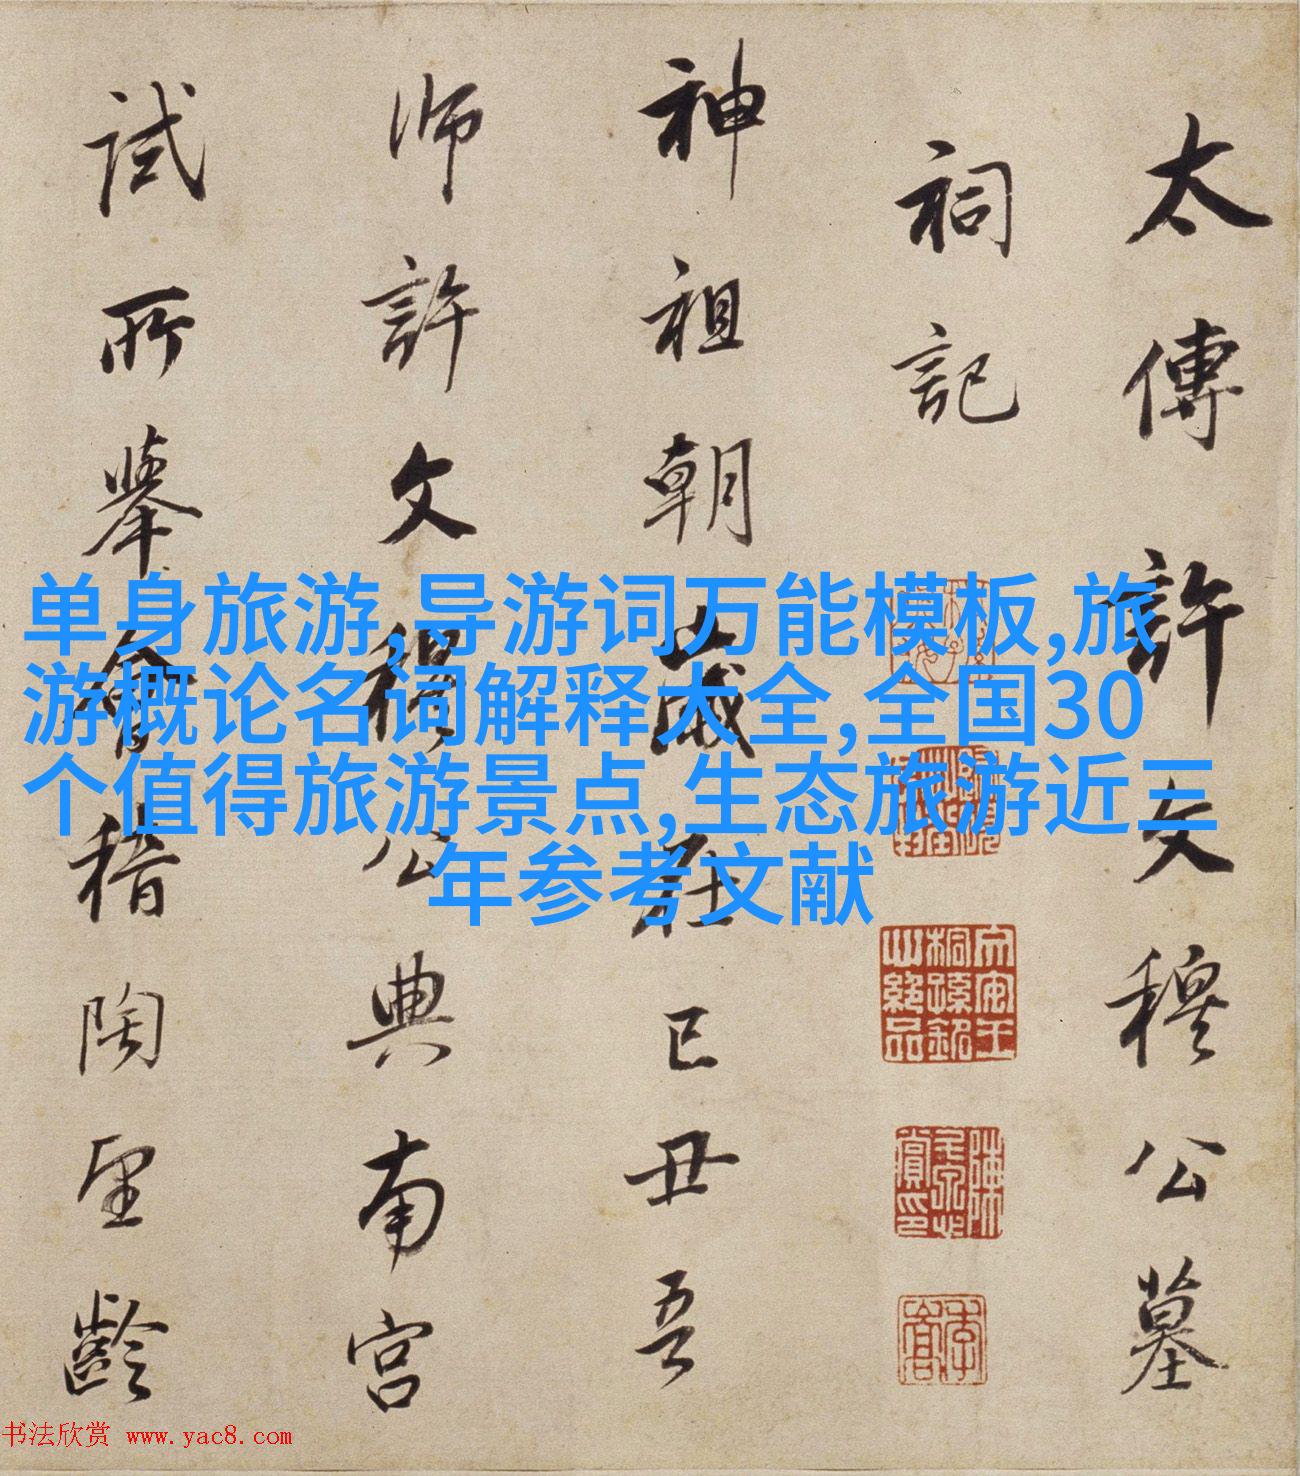 太傳許文穆公墓
祠記
神祖朝歲在己丑吾
師許文穆公典南宮
試所舉會稽陶望齡
单身旅游,导游词万能模板,旅
游概论名词解释大全,全国30
个值得旅游景点,生态旅游近三
年参考文献
书法欣赏 www.yac8.com